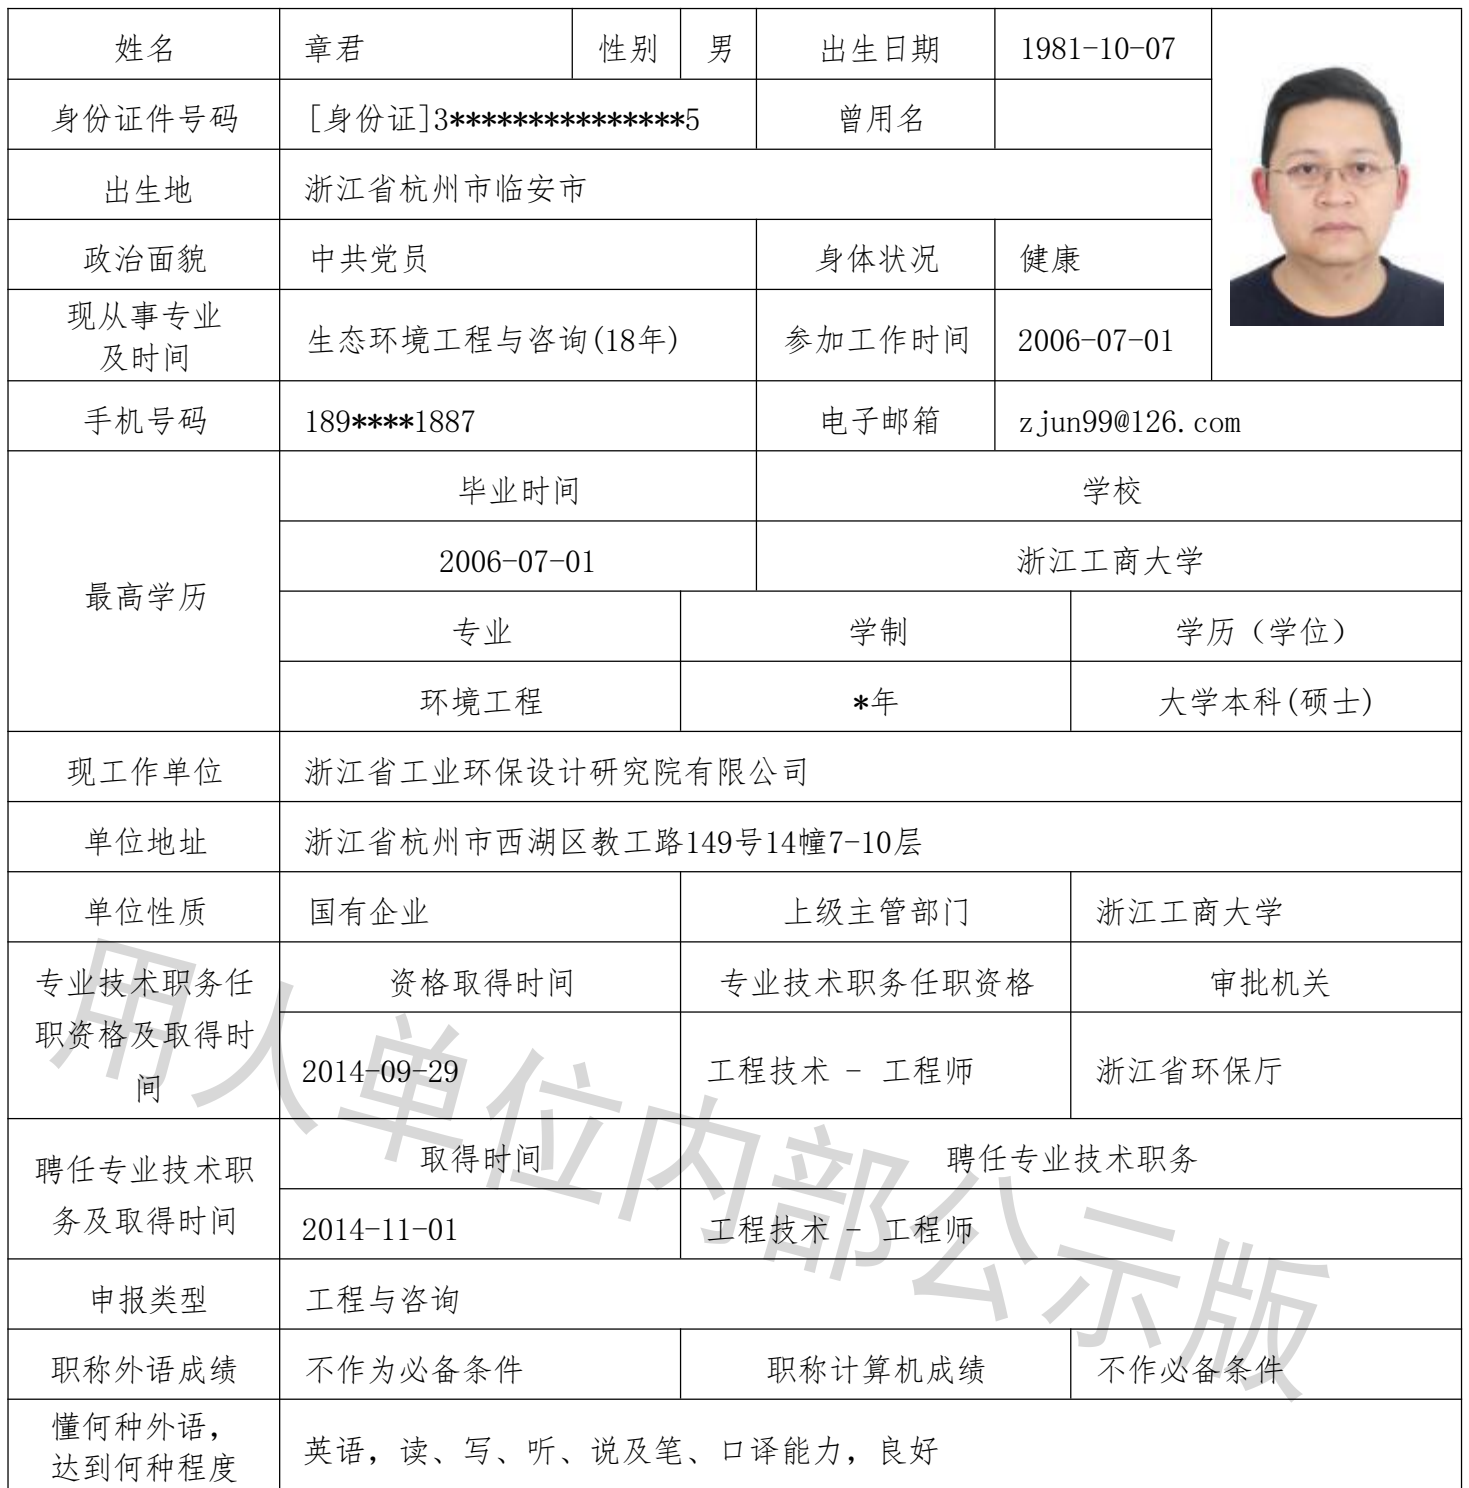 姓名 章君 性别 男 出生日期 1981-10-07
身份证件号码 [身份证]3***************5 曾用名
出生地 浙江省杭州市临安市
政治面貌 中共党员 身体状况 健康
现从事专业
及时间 生态环境工程与咨询(18年) 参加工作时间 2006-07-01
手机号码 189****1887 电子邮箱 zjun99@126.com
最高学历
毕业时间 学校
2006-07-01 浙江工商大学
专业 学制 学历（学位）
环境工程 *年 大学本科(硕士)
现工作单位 浙江省工业环保设计研究院有限公司
单位地址 浙江省杭州市西湖区教工路149号14幢7-10层
单位性质 国有企业 上级主管部门 浙江工商大学
专业技术职务任
职资格及取得时
间
资格取得时间 专业技术职务任职资格 审批机关
2014-09-29 工程技术 - 工程师 浙江省环保厅
聘任专业技术职
务及取得时间
取得时间 聘任专业技术职务
2014-11-01 工程技术 - 工程师
申报类型 工程与咨询
职称外语成绩 不作为必备条件 职称计算机成绩 不作必备条件
懂何种外语，
达到何种程度 英语，读、写、听、说及笔、口译能力，良好
用人单位内部公示版